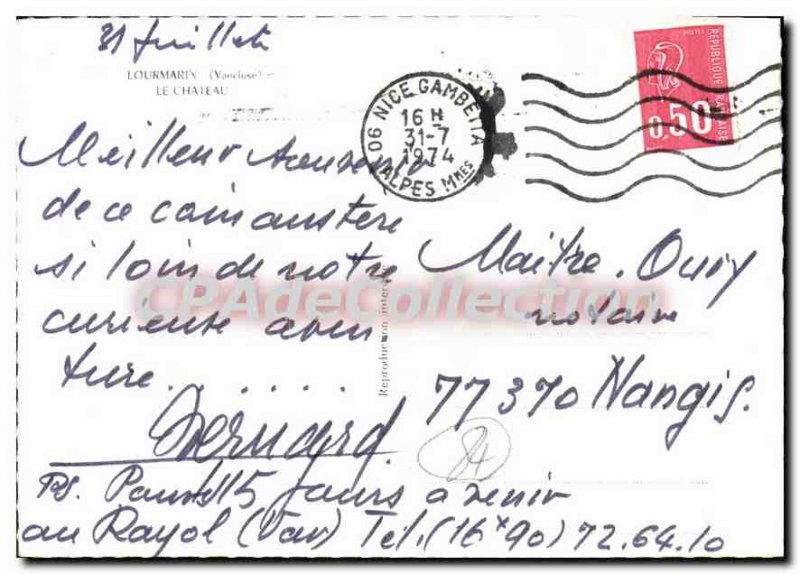 31 juillet
LOURMARIN (Vaucluse)
LE CHATEAU
Meilleur souvenir
de ce coin austère
si loin de notre
curieuse aven
ture......
Bernard
PS. Pour 15 jours a venir
au Rayol (Var) Tel, (16 x 90) 72.64.10
06 NICE GAMBETTA
16 H
31-7
1974
ALPES Mmes
REPUBLIQUE FRANÇAISE
0,50
Maître. Oury
notaire
77370 Nangis.
Reproduction interdite
CPAdeCollection